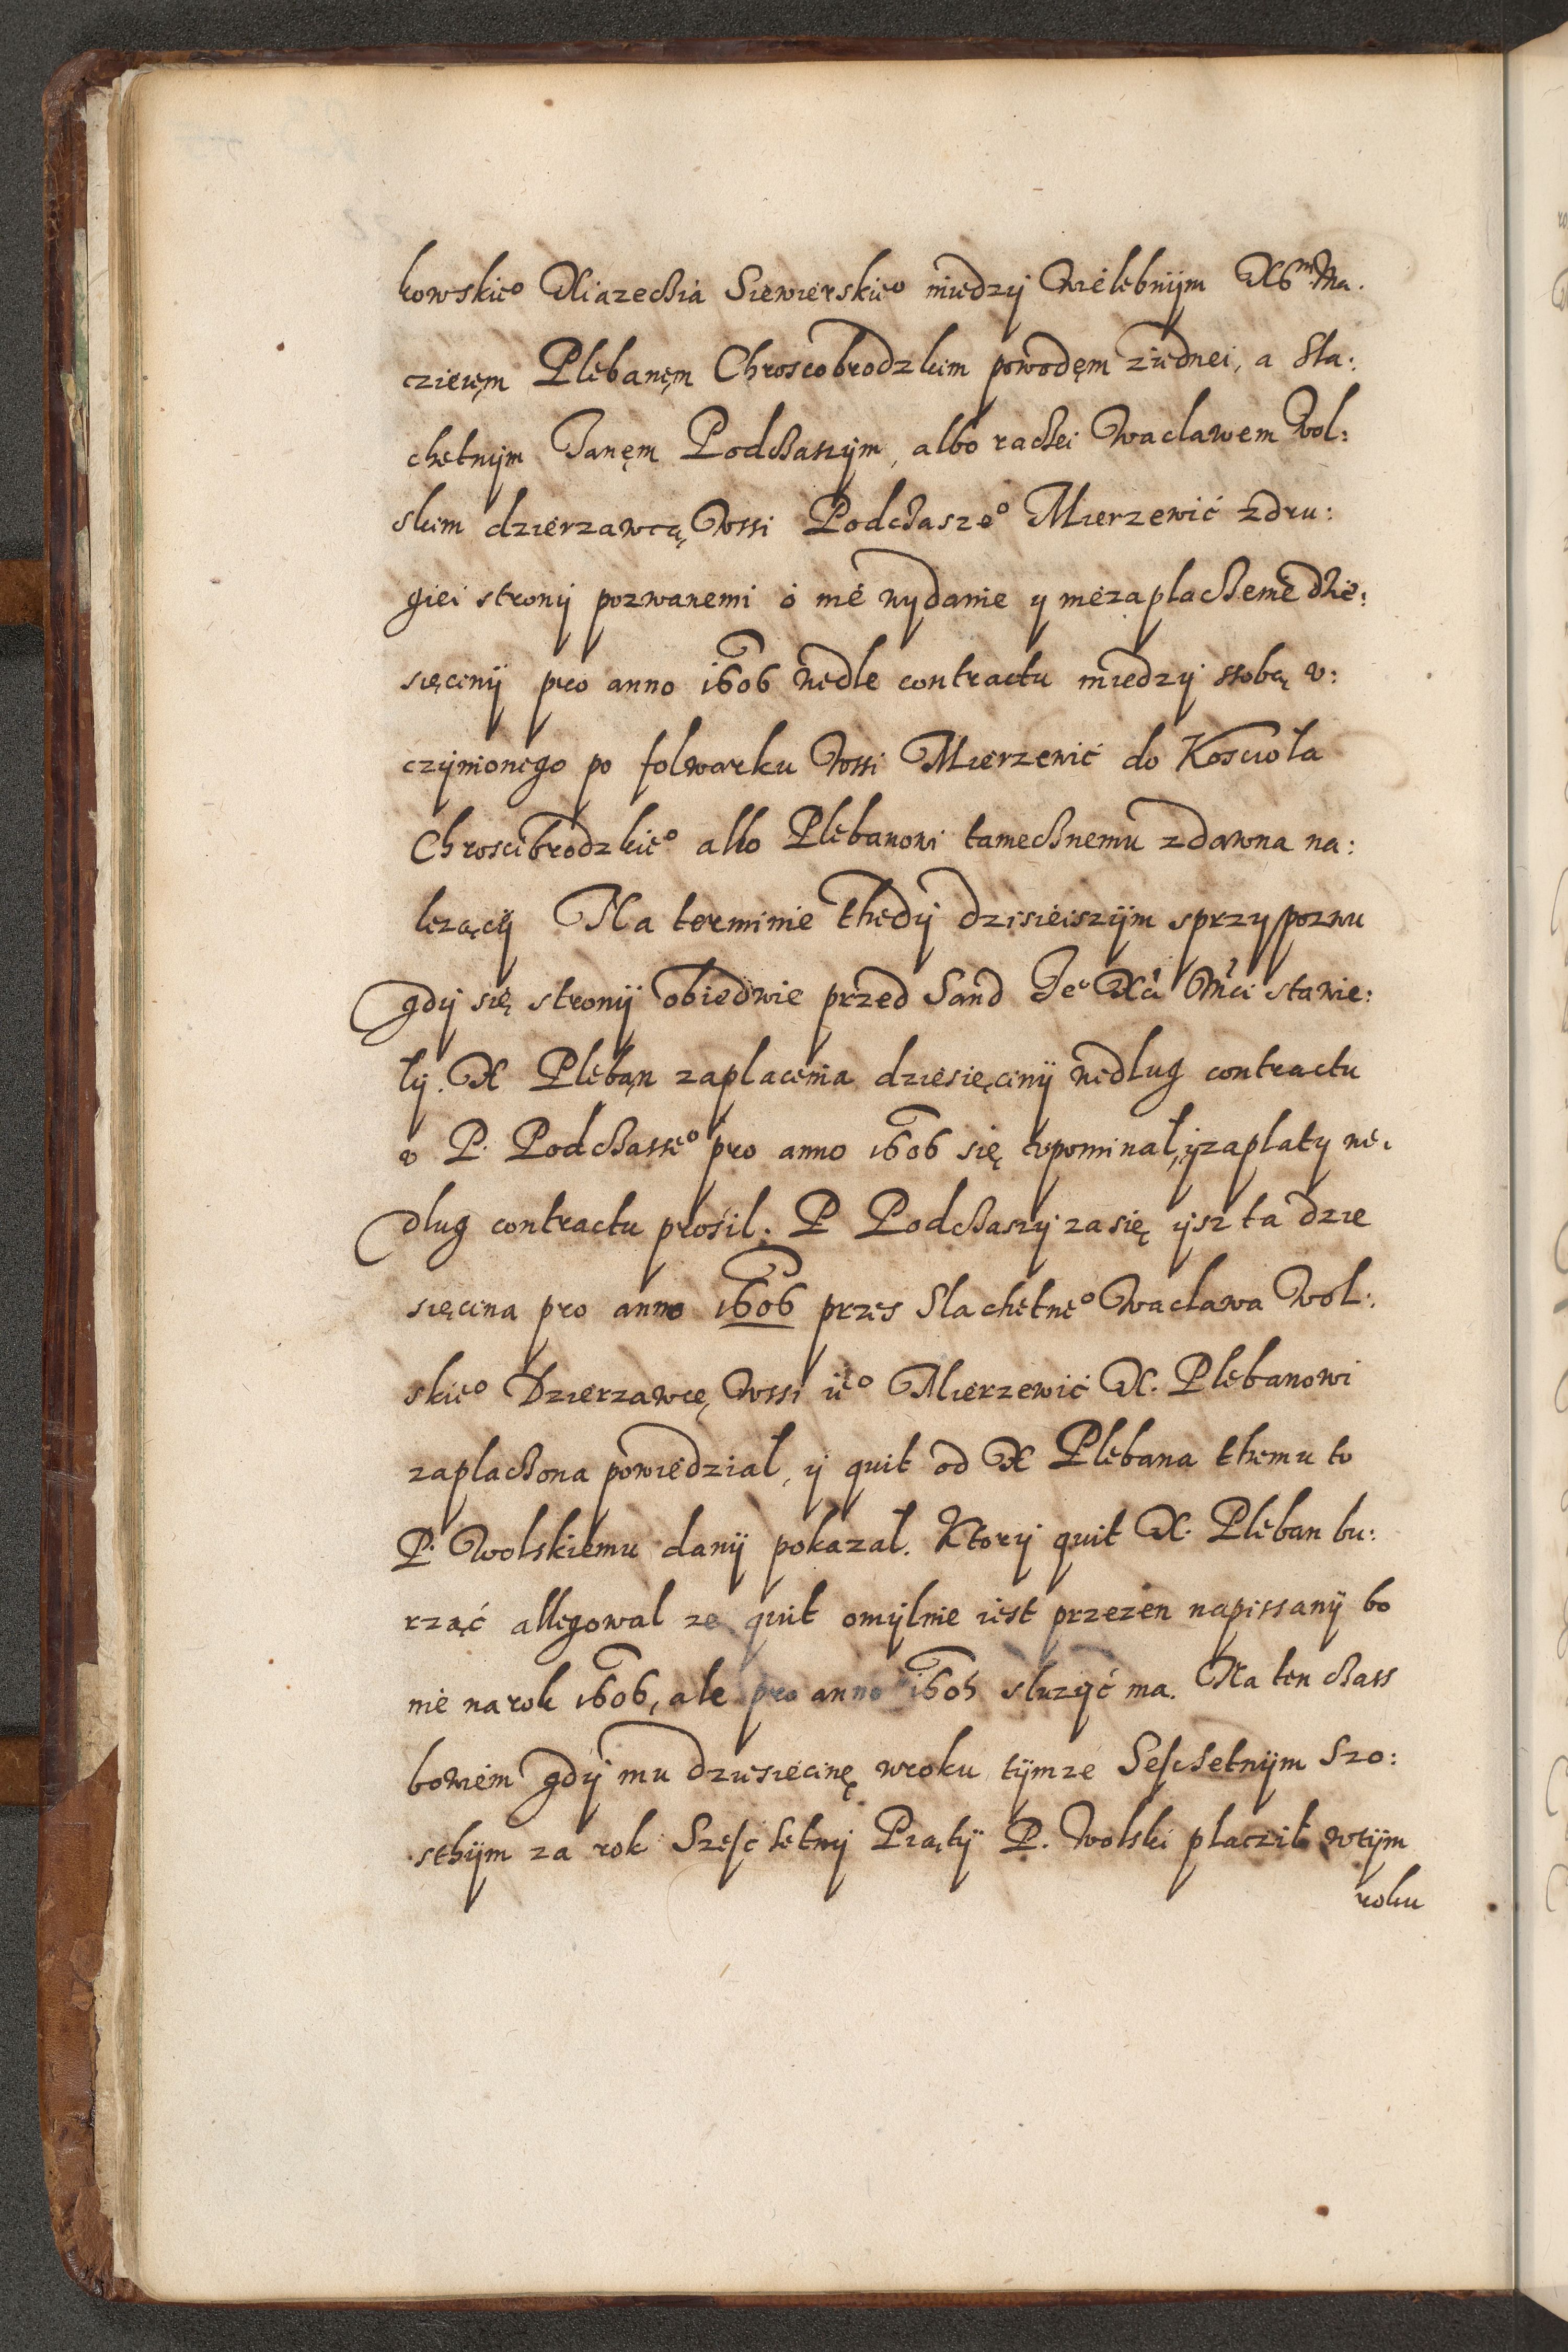 kowskieo Xiazechia Siewierskieo miedzÿ Wielebnÿm X6m Ma.
czieięm Plebanęm Chroscobrodzkim powodęm ziednei, a Sla:
chetnÿm Janęm Podchaszÿm, albo rachei Waclawem Wol:
skim dzierzawcą Wssi Podchaszeo Mierzewić zdru:
giei stronÿ pozwanemi o nie wydanie y niezaplachenie dzie:
sięcinÿ pro anno 1606 wedle contractu miedzÿ ssobą v:
czÿnionego po folwarku Wssi Mierzewić do Kosciola
Chroscibrodzkieo albo Plebanowi tamechnemu zdawna na:
lezącÿ Na terminie thedÿ dzisieiszÿm sprzypozwu
gdÿ się stronÿ obiedwie przed Sand Jeo Xci Mci stawie:
lÿ. X Pleban zaplacenia dziesięcinÿ wedlug contractu
v P. Podchasseo pro anno 1606 się vpominal, ÿ zaplaty we:
dlug contractu prosil. P Podchaszÿ zasię ÿsz ta dzie
sięcina pro anno 1606 przes Slachetneo Waclawa Wol:
skieo Dzierzawcę Wssi ieo Mierzewić X. Plebanowi
zaplachona powiedzial, ÿ quit od X Plebana themu to
P. Wolskiemu danÿ pokazal. Ktorÿ quit X. Pleban bu:
rząć allegowal ze quit omÿlnie iest przezen napissanÿ bo
nie na rok 1606, ale pro anno 1605 sluzyć ma. Na ten chass
bowiem gdÿ mu dziesiecinę wroku tÿmze Sescsetnÿm Szo:
sthÿm za rok Szesć setnÿ Piątÿ P. Wolski placzil wtÿm
roku